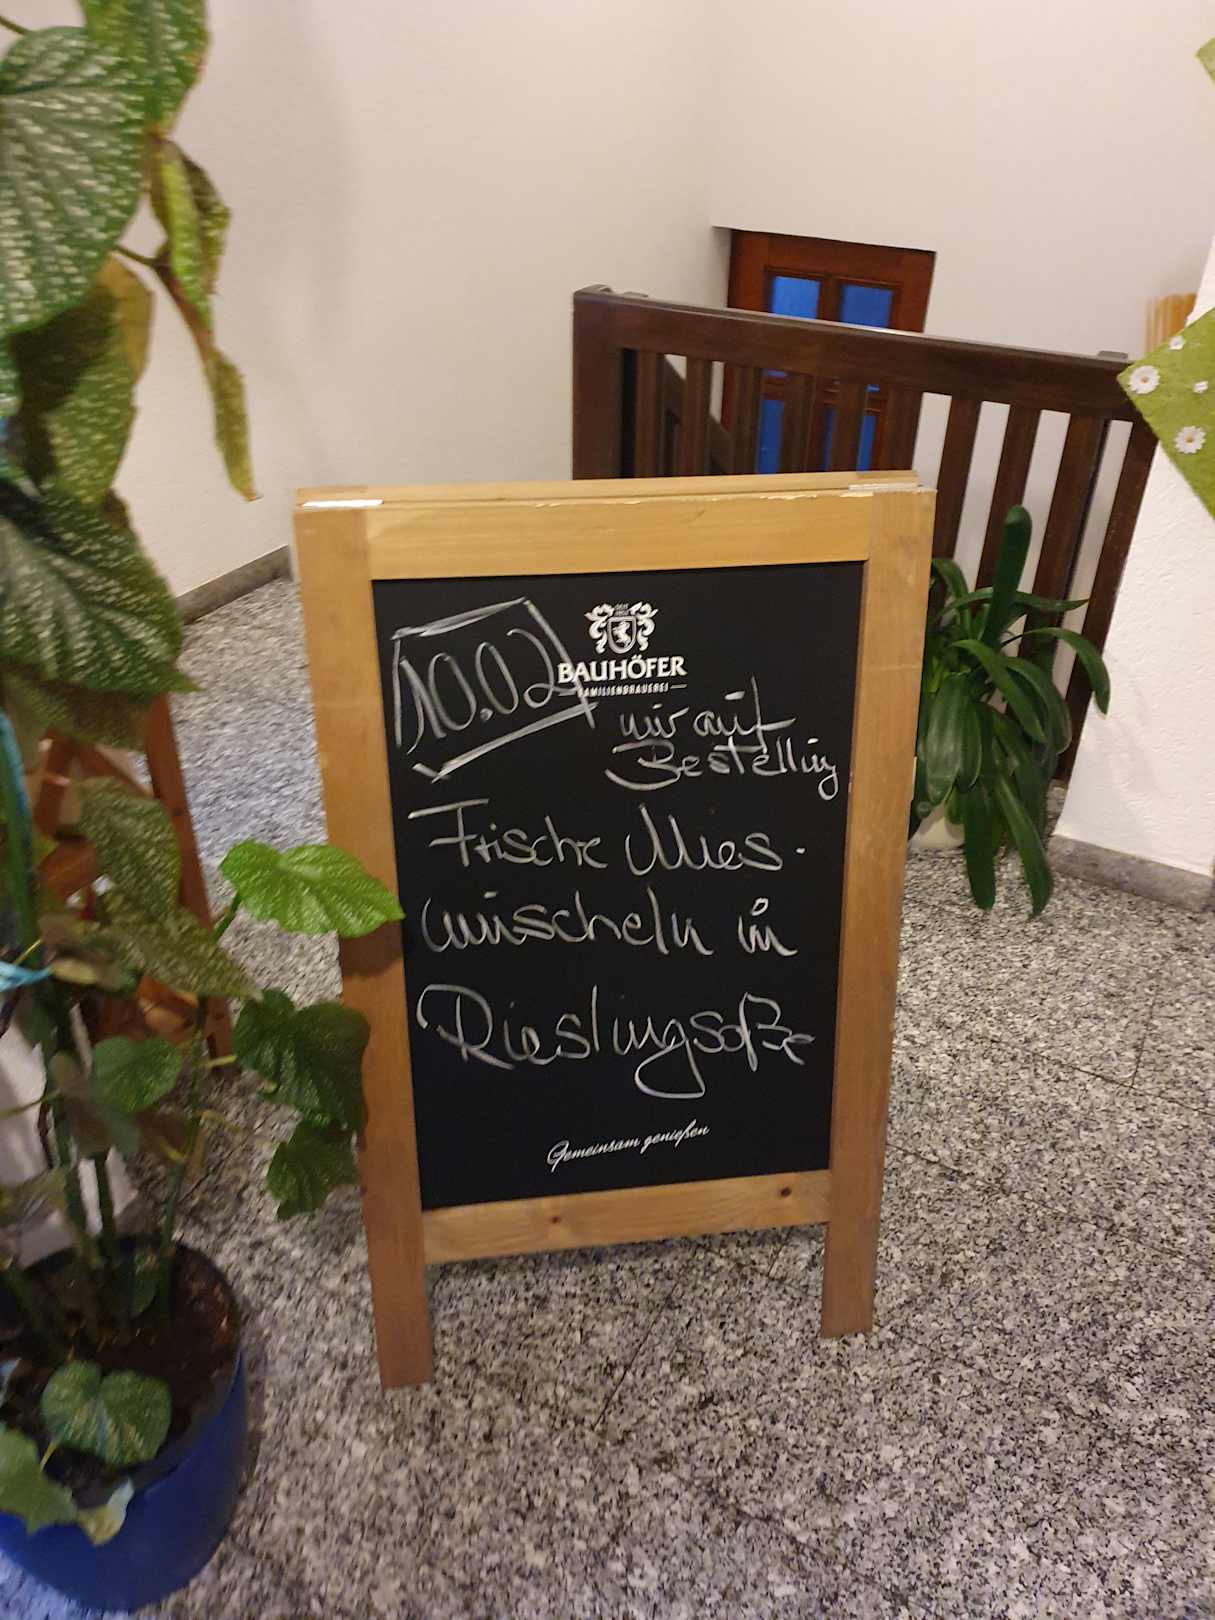 SEIT
1852
BAUHÖFER
FAMILIENBRAUEREI
10.02
nur auf
Bestellung
Frische Mies-
muscheln in
Rieslingsoße
Gemeinsam genießen